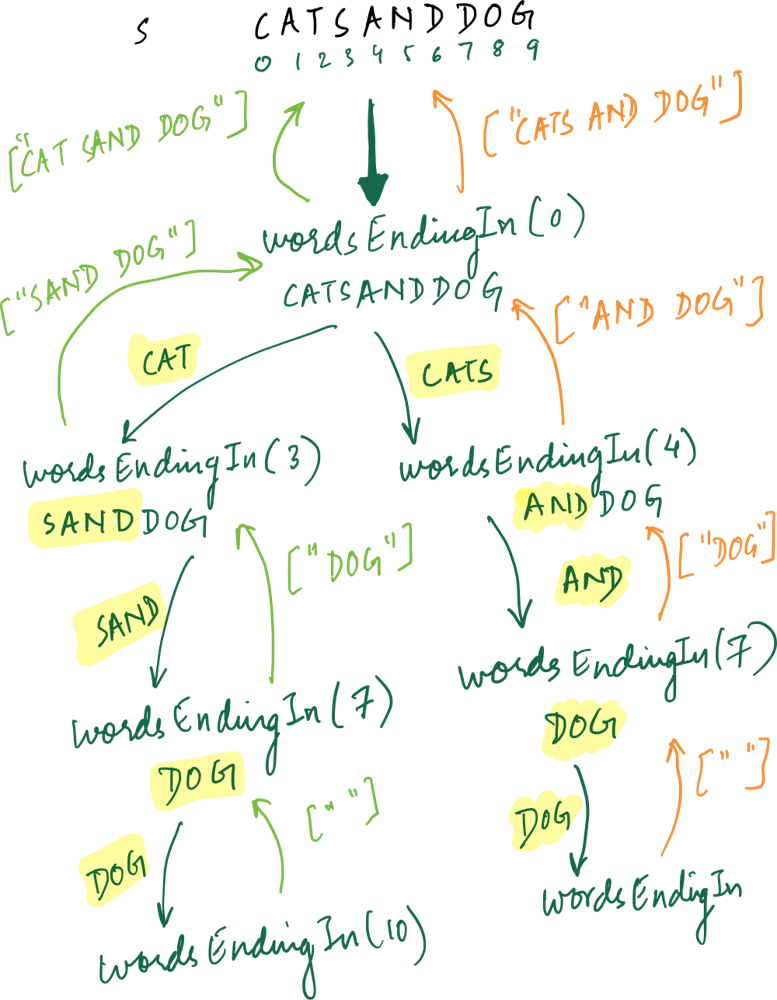 S CATSANDDOG
0 1 2 3 4 5 6 7 8 9
["CAT SAND DOG"]
["CATS AND DOG"]
wordsEndingIn(0)
CATSANDDOG
["SAND DOG"]
["AND DOG"]
CAT
CATS
wordsEndingIn(3)
SANDDOG
wordsEndingIn(4)
ANDDOG
["DOG"]
["DOG"]
SAND
AND
wordsEndingIn(7)
DOG
wordsEndingIn(7)
DOG
[" "]
[" "]
DOG
DOG
wordsEndingIn(10)
wordsEndingIn